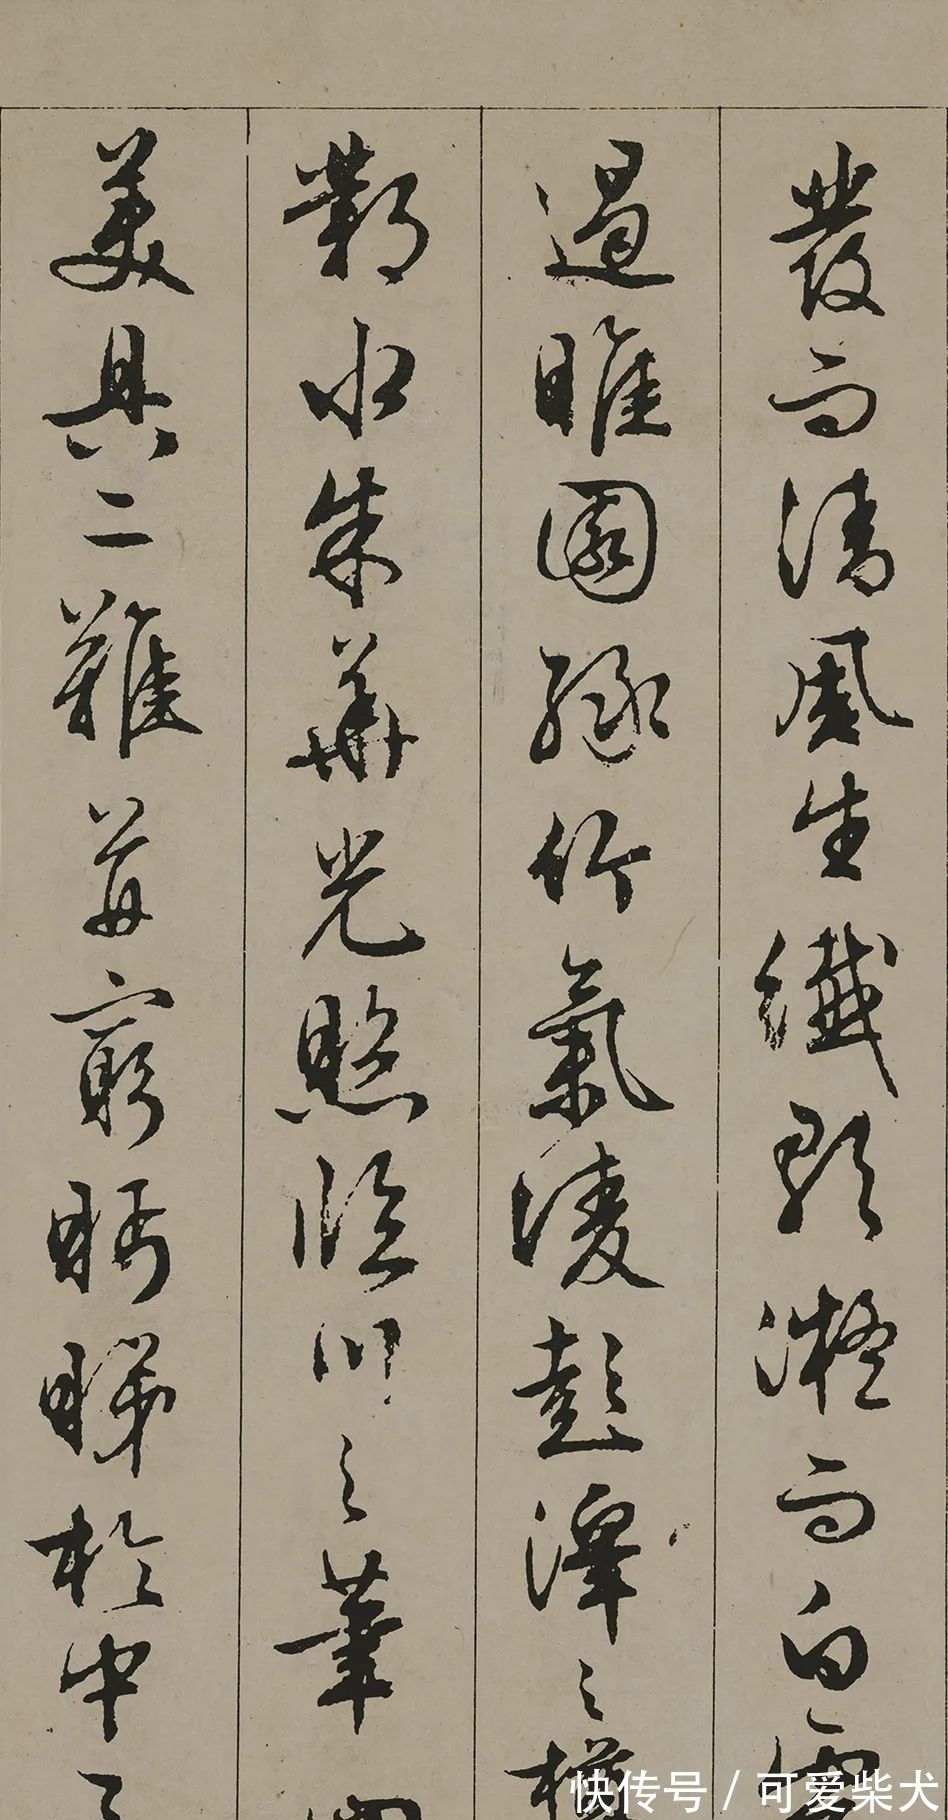 發而清風生纖歌凝而白雲
遏睢園綠竹氣凌彭澤之樽
鄴水朱華光照臨川之筆四
美具二難并窮睇眄於中天
快传号 / 可爱柴犬